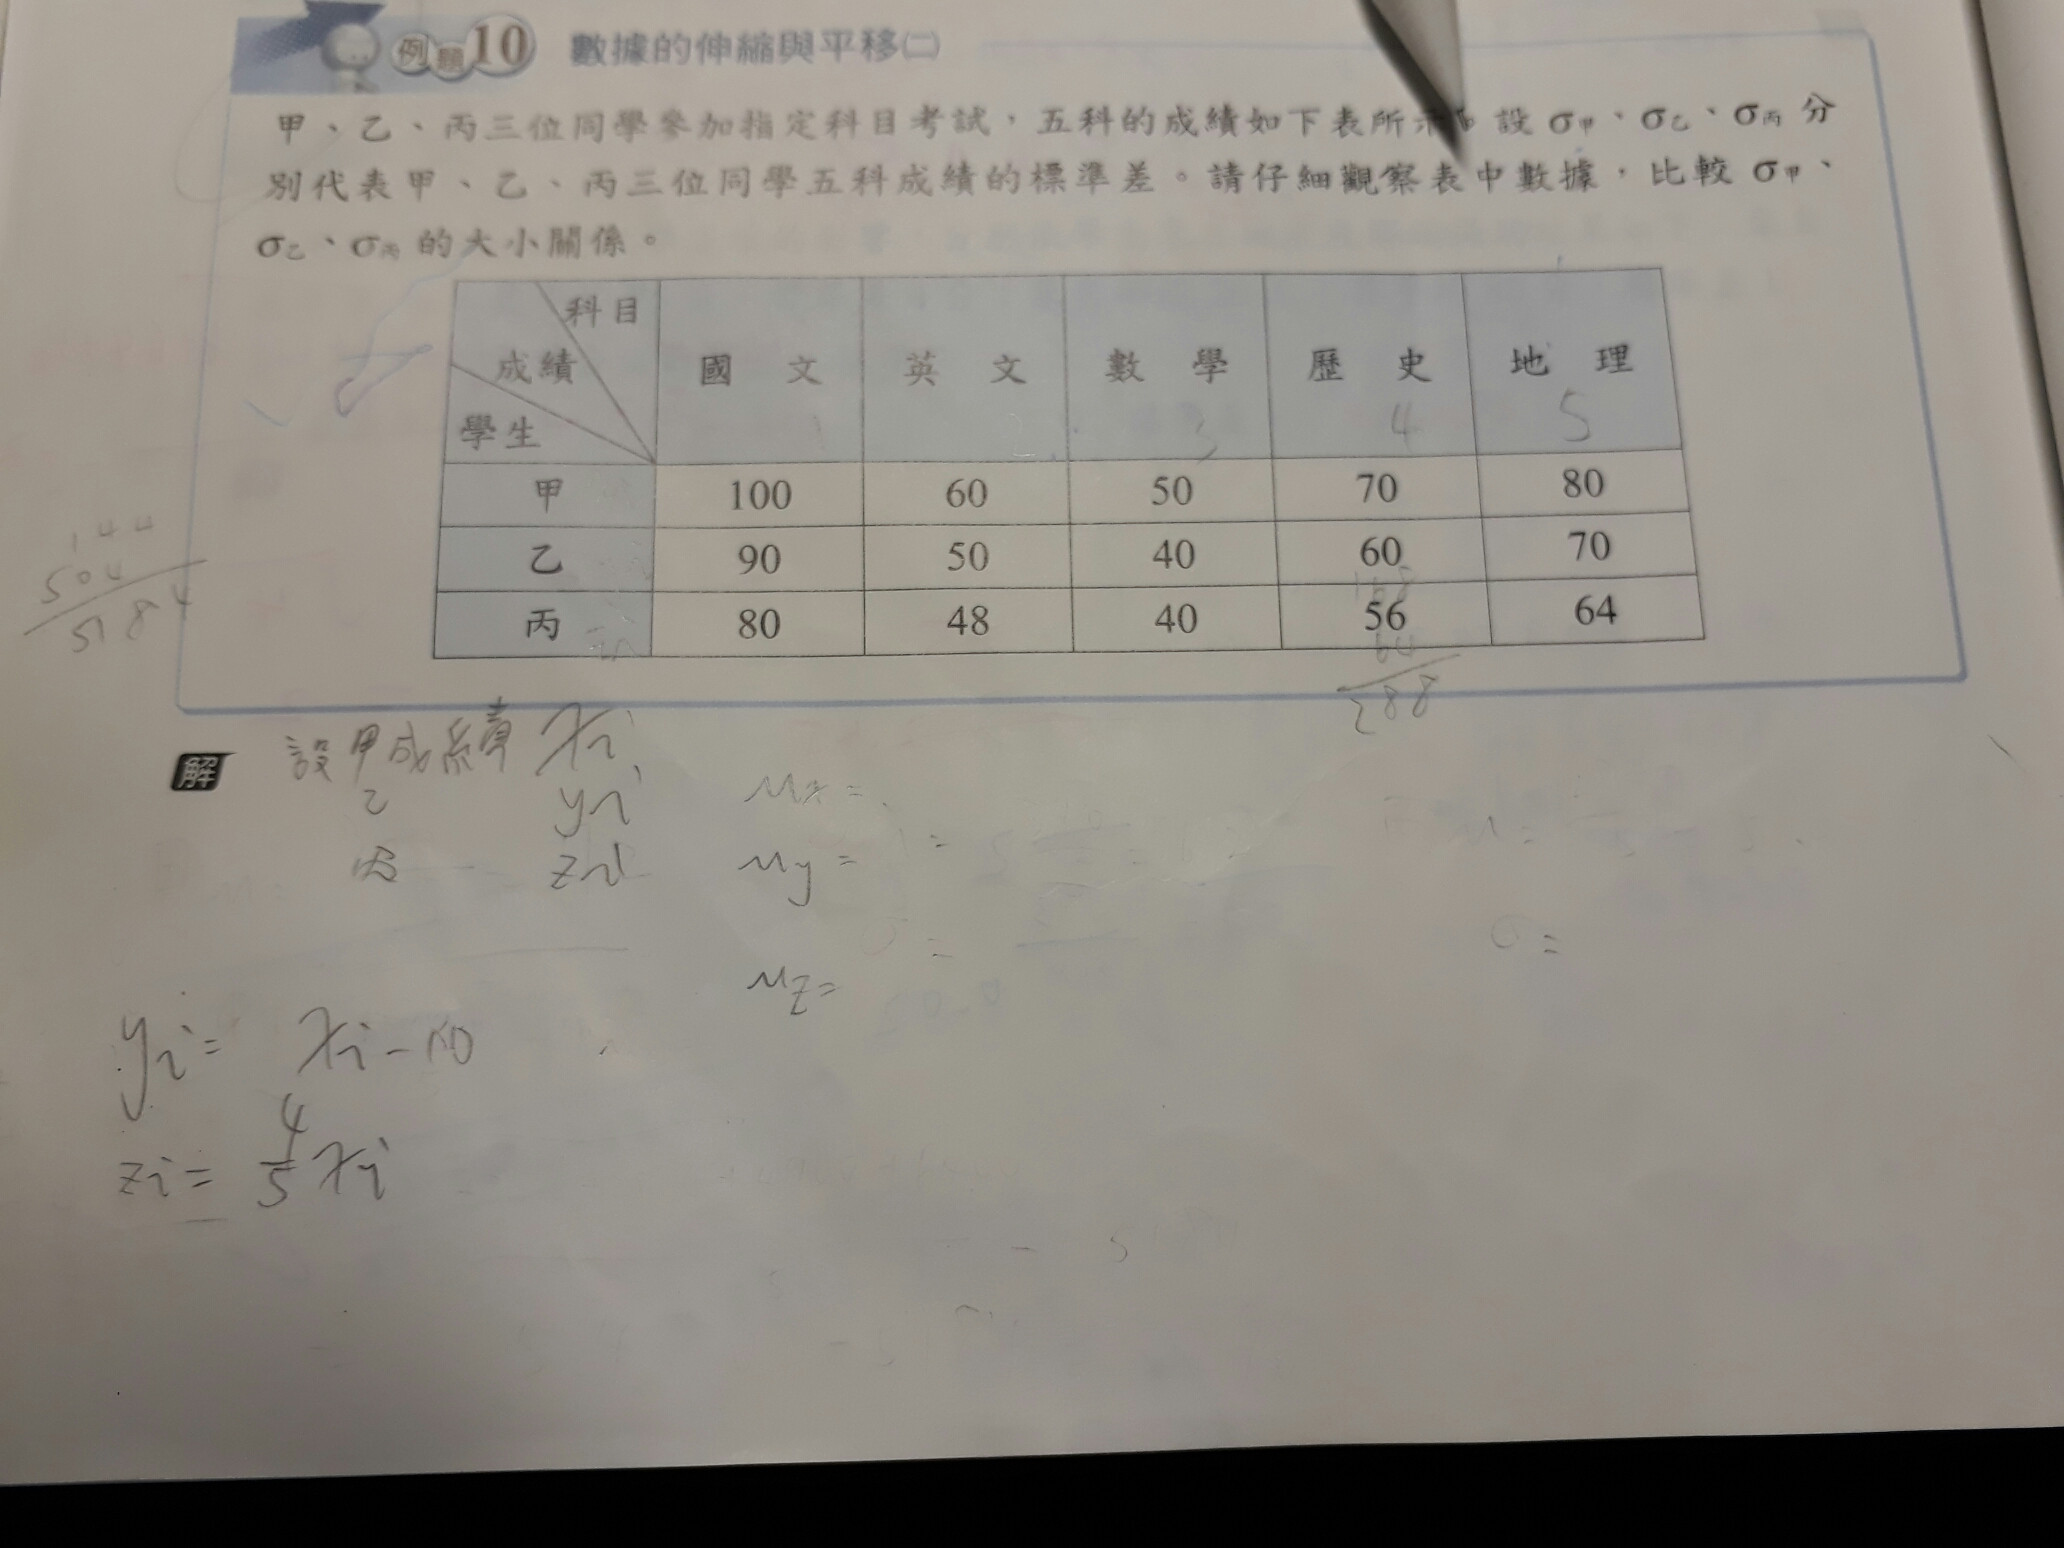 例題10 數據的伸縮與平移㈡
甲、乙、丙三位同學參加指定科目考試，五科的成績如下表所示。設 σ甲、σ乙、σ丙 分
別代表甲、乙、丙三位同學五科成績的標準差。請仔細觀察表中數據，比較 σ甲、
σ乙、σ丙 的大小關係。
科目
成績
學生
國文 英文 數學 歷史 地理
3 4 5
甲 100 60 50 70 80
乙 90 50 40 60 70
丙 80 48 40 56 64
144
504
5184
64
288
解
設甲成績 xi
乙 yi
丙 zi
μx=
μy=
μz=
σ=
yi= xi-10
zi= 4/5 xi